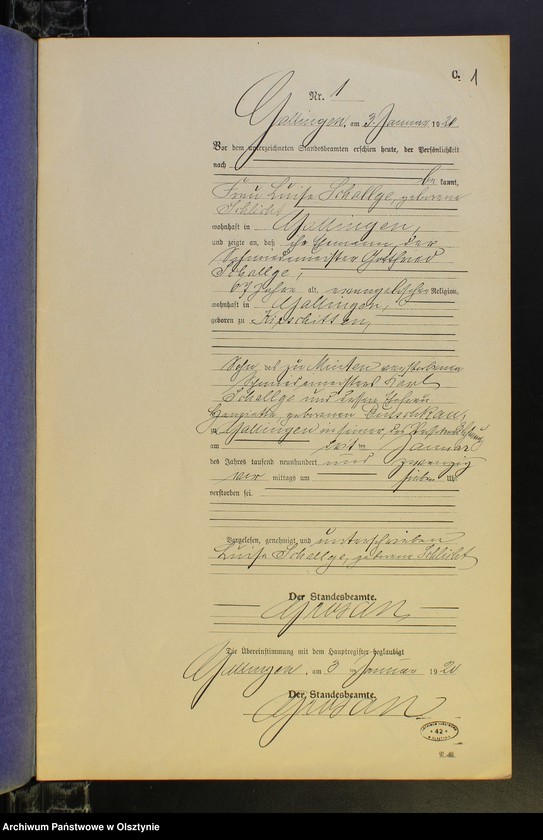 C. 1
Nr. 1
Gallingen, am 3. Januar 1920
Vor dem unterzeichneten Standesbeamten erschien heute, der Persönlichkeit
nach
be kannt,
Frau Luise Schellge, geborene
Schlicht
wohnhaft in Gallingen,
und zeigte an, daß ihr Ehemann, der
Schmiedemeister Gottfried
Schellge,
67 Jahre alt, evangelischer Religion,
wohnhaft in Gallingen,
geboren zu
Sohn des zu Minten verstorbenen
Schmiedemeisters Karl
Schellge und dessen Ehefrau
geborenen
zu Gallingen in seiner
am Januar
des Jahres tausend neunhundert und zwanzig
vor mittags um sieben Uhr
verstorben sei.
Vorgelesen, genehmigt und unterschrieben
Luise Schellge, geborene Schlicht
Der Standesbeamte.
Die Übereinstimmung mit dem Hauptregister beglaubigt
Gallingen, am 3 Januar 1920
Der Standesbeamte.
42
Archiwum Państwowe w Olsztynie